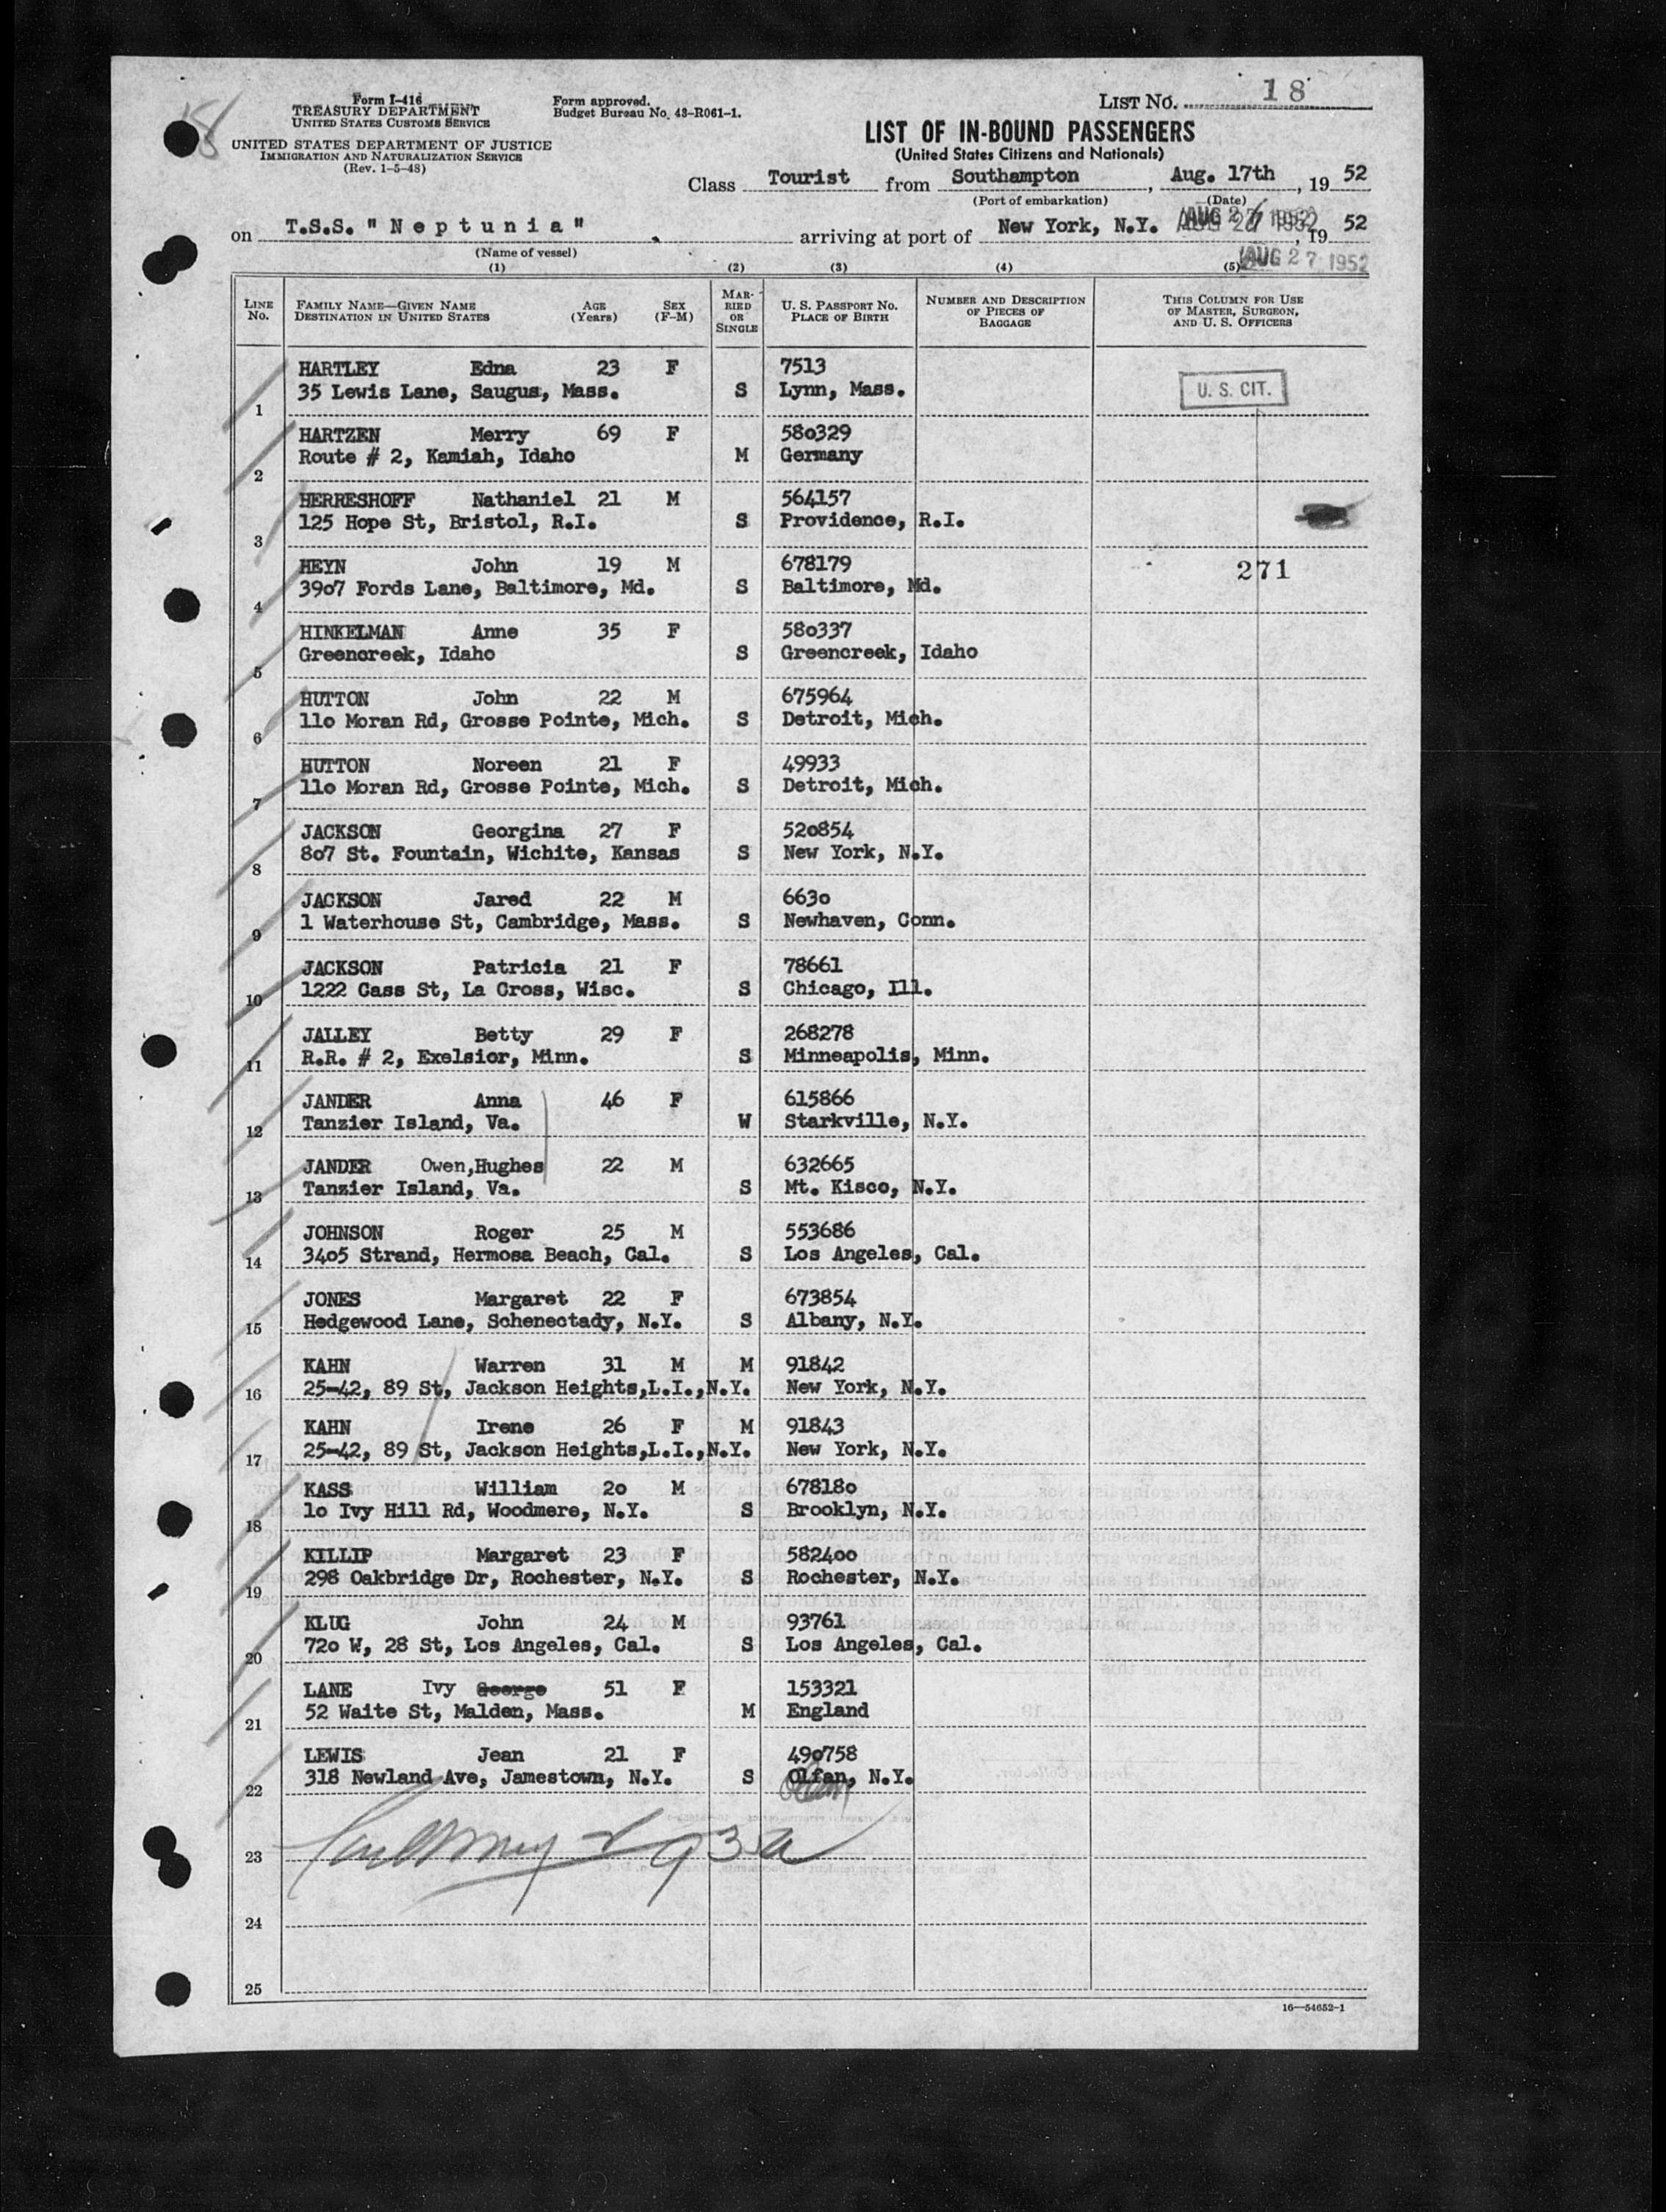 18
Form I-416
TREASURY DEPARTMENT
UNITED STATES CUSTOMS SERVICE
UNITED STATES DEPARTMENT OF JUSTICE
IMMIGRATION AND NATURALIZATION SERVICE
(Rev. 1-5-48)
Form approved.
Budget Bureau No. 43-R061-1.
LIST NO. 18
LIST OF IN-BOUND PASSENGERS
(United States Citizens and Nationals)
Class Tourist from Southampton, Aug. 17th, 19 52
(Port of embarkation) (Date)
on T.S.S. "Neptunia" . arriving at port of New York, N.Y. , 19 52
(Name of vessel)
AUG 27 1952
(1) (2) (3) (4) (5)
LINE No. FAMILY NAME—GIVEN NAME DESTINATION IN UNITED STATES AGE (Years) SEX (F-M) MARRIED OR SINGLE U. S. PASSPORT NO. PLACE OF BIRTH NUMBER AND DESCRIPTION OF PIECES OF BAGGAGE THIS COLUMN FOR USE OF MASTER, SURGEON, AND U. S. OFFICERS
HARTLEY Edna 23 F 7513
1 35 Lewis Lane, Saugus, Mass. S Lynn, Mass. U. S. CIT.
HARTZEN Merry 69 F 580329
2 Route # 2, Kamiah, Idaho M Germany
HERRESHOFF Nathaniel 21 M 564157
3 125 Hope St, Bristol, R.I. S Providence, R.I.
HEYN John 19 M 678179 271
4 3907 Fords Lane, Baltimore, Md. S Baltimore, Md.
HINKELMAN Anne 35 F 580337
5 Greencreek, Idaho S Greencreek, Idaho
HUTTON John 22 M 675964
6 110 Moran Rd, Grosse Pointe, Mich. S Detroit, Mich.
HUTTON Noreen 21 F 49933
7 110 Moran Rd, Grosse Pointe, Mich. S Detroit, Mich.
JACKSON Georgina 27 F 520854
8 807 St. Fountain, Wichite, Kansas S New York, N.Y.
JACKSON Jared 22 M 6630
9 1 Waterhouse St, Cambridge, Mass. S Newhaven, Conn.
JACKSON Patricia 21 F 78661
10 1222 Cass St, La Cross, Wisc. S Chicago, Ill.
JALLEY Betty 29 F 268278
11 R.R. # 2, Exelsior, Minn. S Minneapolis, Minn.
JANDER Anna 46 F 615866
12 Tanzier Island, Va. W Starkville, N.Y.
JANDER Owen,Hughes 22 M 632665
13 Tanzier Island, Va. S Mt. Kisco, N.Y.
JOHNSON Roger 25 M 553686
14 3405 Strand, Hermosa Beach, Cal. S Los Angeles, Cal.
JONES Margaret 22 F 673854
15 Hedgewood Lane, Schenectady, N.Y. S Albany, N.Y.
KAHN Warren 31 M M 91842
16 25-42, 89 St, Jackson Heights,L.I.,N.Y. New York, N.Y.
KAHN Irene 26 F M 91843
17 25-42, 89 St, Jackson Heights,L.I.,N.Y. New York, N.Y.
KASS William 20 M 678180
18 10 Ivy Hill Rd, Woodmere, N.Y. S Brooklyn, N.Y.
KILLIP Margaret 23 F 582400
19 298 Oakbridge Dr, Rochester, N.Y. S Rochester, N.Y.
KLUG John 24 M 93761
20 720 W, 28 St, Los Angeles, Cal. S Los Angeles, Cal.
LANE Ivy George 51 F 153321
21 52 Waite St, Malden, Mass. M England
LEWIS Jean 21 F 490758
22 318 Newland Ave, Jamestown, N.Y. S Olfan, N.Y.
23
24
25
16—54652-1